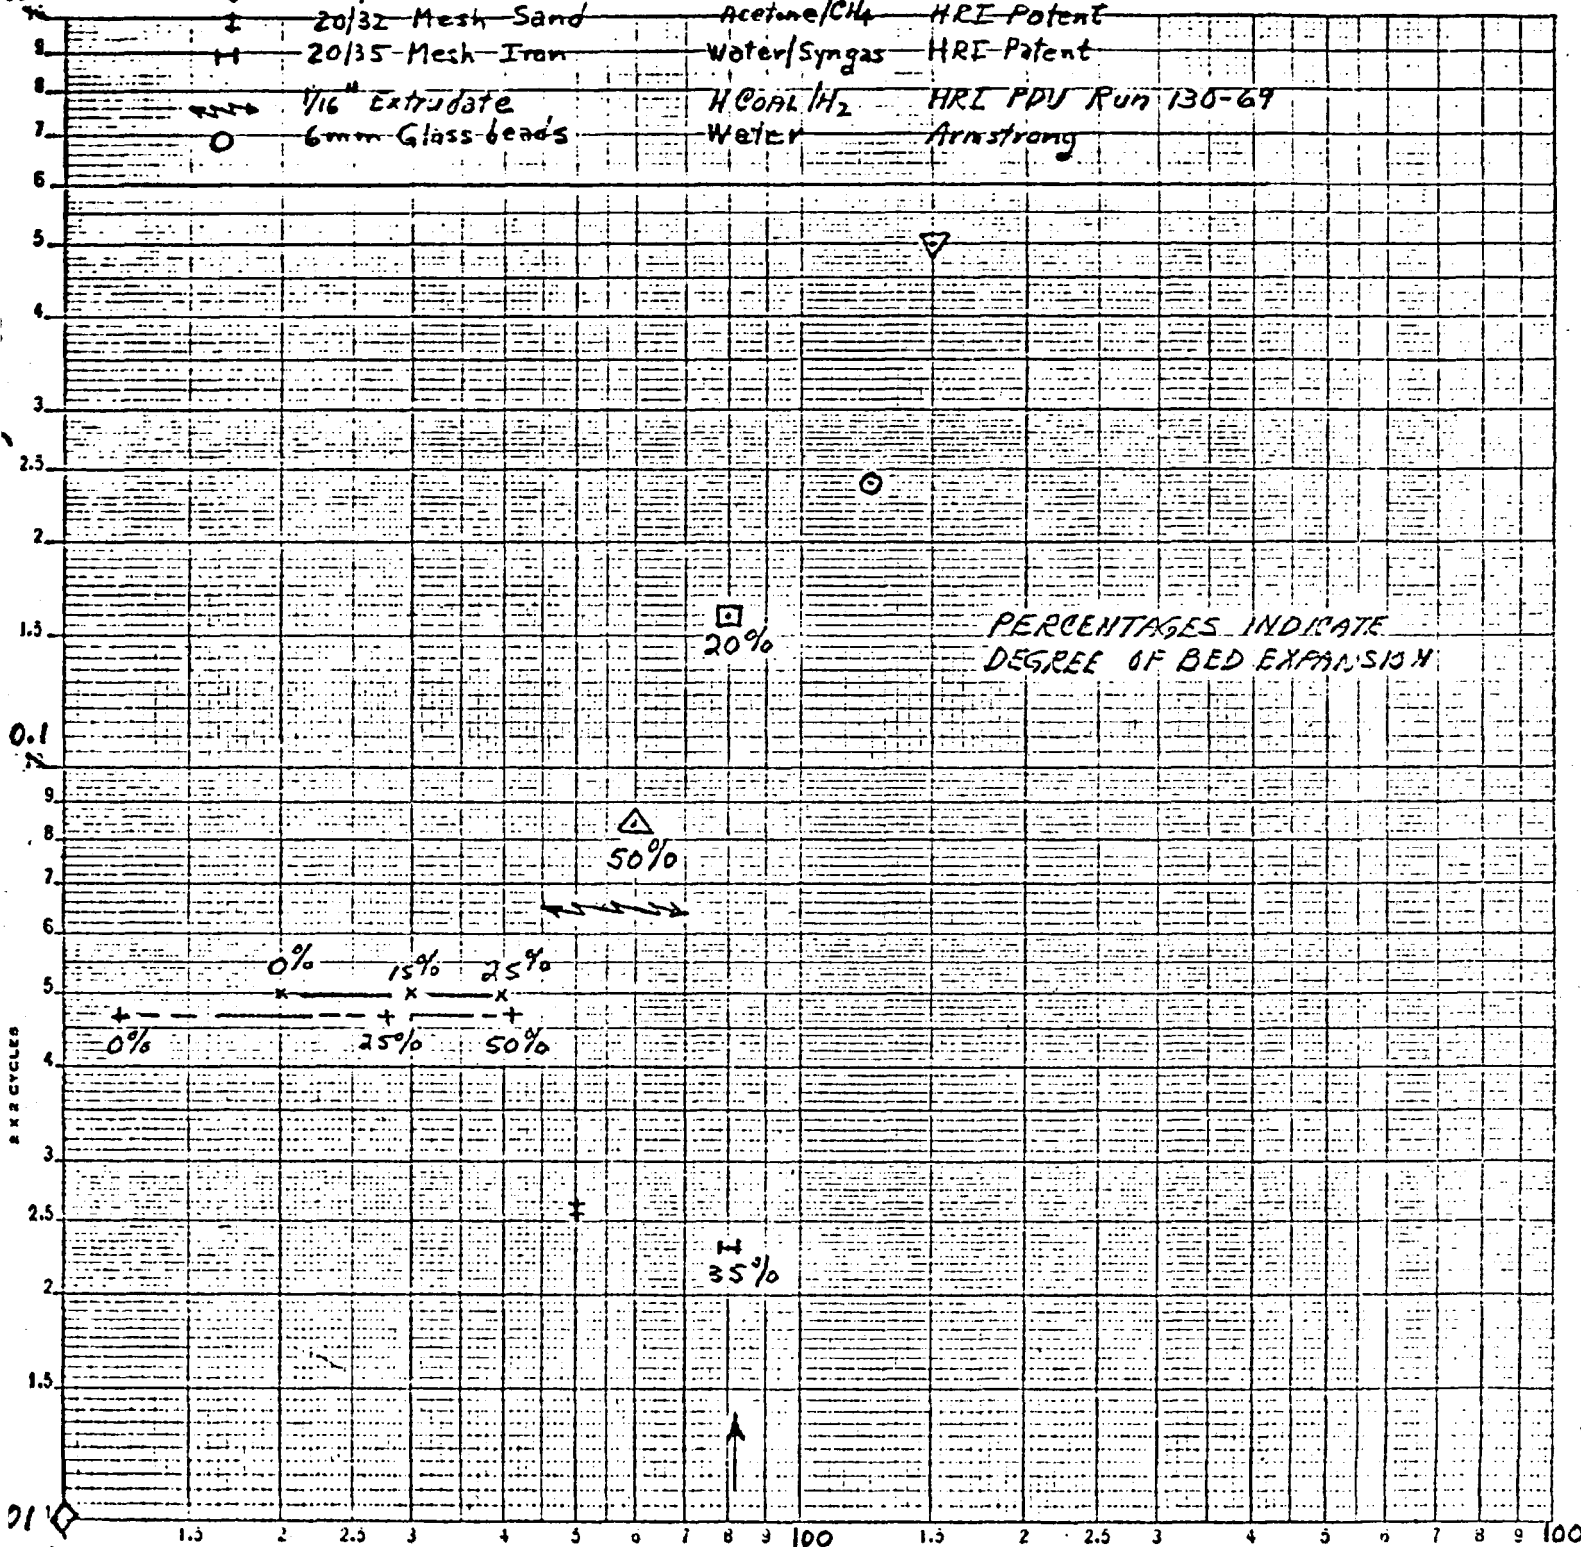 20/32 Mesh Sand Acetone/CH4 HRI Patent
20/35 Mesh Iron Water/Syngas HRI Patent
1/16" Extrudate H COAL/H2 HRI PDU Run 130-69
6mm Glass beads Water Armstrong
9
8
7
6
5
4
3
2.5
2
1.5
20%
PERCENTAGES INDICATE
DEGREE OF BED EXPANSION
0.1
9
8
50%
7
6
0% 15% 25%
5
0% 25% 50%
4
2 X 2 CYCLES
3
2.5
35%
2
1.5
1.5 2 2.5 3 4 5 6 7 8 9 100 1.5 2 2.5 3 4 5 6 7 8 9 100